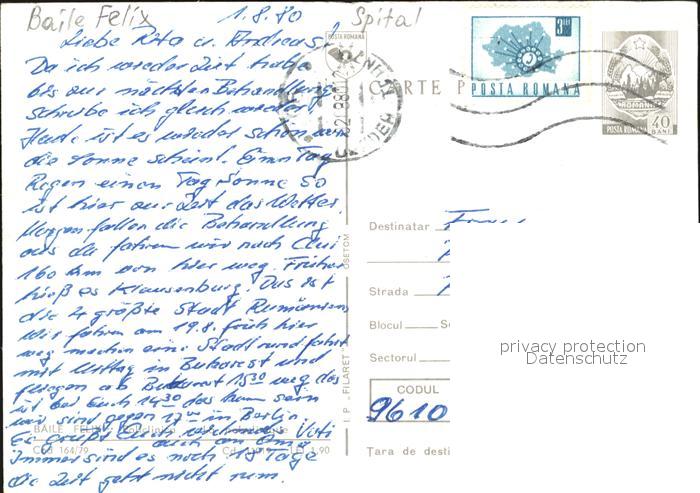 Baile Felix 1.8.80 Spital
Liebe Rita u. Andreas!
Da ich wieder Zeit habe
bis zur nächsten Behandlung
schreibe ich gleich wieder.
Heute ist es wieder schön warm
die Sonne scheint. Einen Tag
Regen einen Tag Sonne So
ist hier zur Zeit das Wetter.
Morgen fallen die Behandlung
aus da fahren wir nach Cluj
160 km von hier weg. Früher
hieß es Klausenburg. Das ist
die 4 größte Stadt Rumäniens
Wir fahren am 19.8. früh hier
weg machen eine Stadtrundfahrt
mit Mittag in Bukarest und
fliegen ab Bukarest 15 30 weg das
ist bei Euch 14 30 das kann sein
wir sind gegen 17 00 in Berlin.
Es grüßt Euch Vati
auch an Oma
Immer sind es noch 18 Tage
die Zeit geht nicht rum.
BĂILE FELIX
Cod 164/79
LEI 1,90
I. P. „FILARET"
POSTA ROMANA
3 LEI
POSTA ROMANA
CARTE P
POSTA ROMANA 40 BANI
Destinatar
Strada
Blocul
Sectorul
CODUL
9610
Țara de desti
privacy protection
Datenschutz